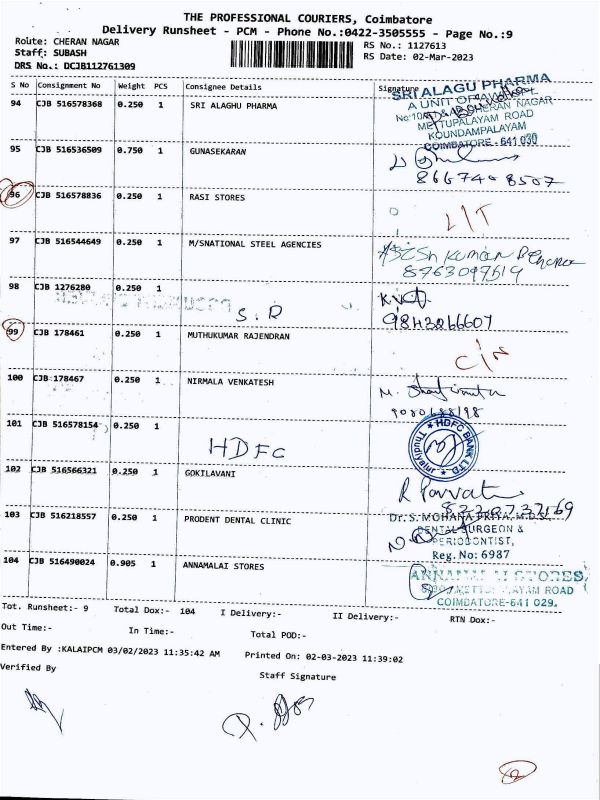 THE PROFESSIONAL COURIERS, Coimbatore
Delivery Runsheet - PCM - Phone No.:0422-3505555 - Page No.:9
Route: CHERAN NAGAR
Staff: SUBASH
DRS No.: DCJB112761309
RS No.: 1127613
RS Date: 02-Mar-2023
S No Consignment No Weight PCS Consignee Details Signature
94 CJB 516578368 0.250 1 SRI ALAGHU PHARMA
SRI ALAGU PHARMA
A UNIT OF
CHERAN NAGAR
METTUPALAYAM ROAD
KOUNDAMPALAYAM
COIMBATORE - 641 030
95 CJB 516536509 0.750 1 GUNASEKARAN
8667408507
96 CJB 516578836 0.250 1 RASI STORES
97 CJB 516544649 0.250 1 M/SNATIONAL STEEL AGENCIES
Kumar
8763097519
98 CJB 1276280 0.250 1
S. R
9843066607
99 CJB 178461 0.250 1 MUTHUKUMAR RAJENDRAN
100 CJB 178467 0.250 1 NIRMALA VENKATESH
101 CJB 516578154 0.250 1
HDFC
HDFC BANK LTD
Thudiyalur
102 CJB 516566321 0.250 1 GOKILAVANI
R Parvathi
103 CJB 516218557 0.250 1 PRODENT DENTAL CLINIC
Dr. S. MOHANA PRIYA, M.D.S.,
DENTAL SURGEON &
PERIODONTIST,
Reg. No: 6987
104 CJB 516490024 0.905 1 ANNAMALAI STORES
ANNAMALAI STORES,
METTUPALAYAM ROAD
COIMBATORE-641 029.
Tot. Runsheet:- 9 Total Dox:- 104 I Delivery:- II Delivery:- RTN Dox:-
Out Time:- In Time:- Total POD:-
Entered By :KALAIPCM 03/02/2023 11:35:42 AM Printed On: 02-03-2023 11:39:02
Verified By Staff Signature